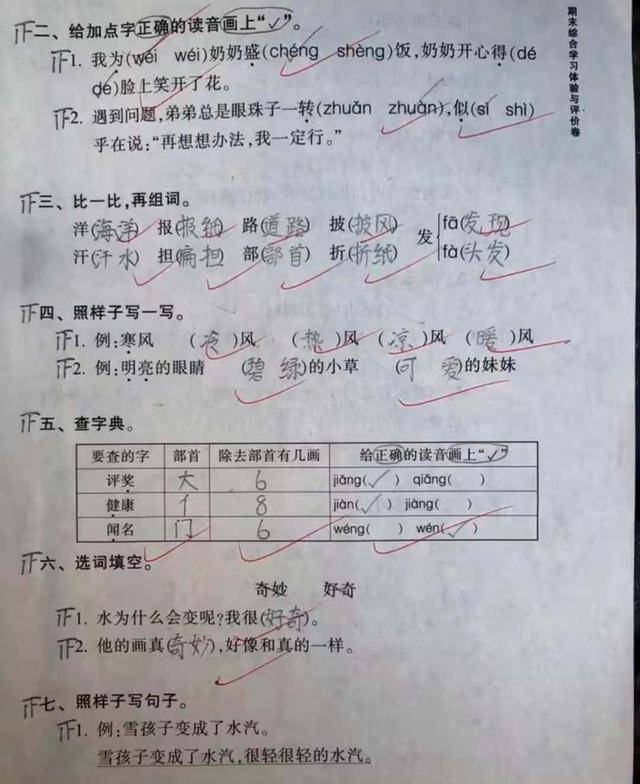 期末综合学习体验与评价卷
正二、给加点字正确的读音画上“✓”。
正1. 我为(wéi wéi)奶奶盛(chéng shèng)饭,奶奶开心得(dé
de)脸上笑开了花。
正2. 遇到问题,弟弟总是眼珠子一转(zhuǎn zhuàn),似(sì shì)
乎在说:“再想想办法,我一定行。”
正三、比一比,再组词。
洋(海洋) 报(报纸) 路(道路) 披(披风) 发 fā(发现)
汗(汗水) 担(痛担) 部(部首) 折(折纸) fà(头发)
正四、照样子写一写。
正1. 例:寒风 (冷)风 (热)风 (凉)风 (暖)风
正2. 例:明亮的眼睛 (碧绿)的小草 (可爱)的妹妹
正五、查字典。
要查的字 部首 除去部首有几画 给正确的读音画上“✓”
评奖 大 6 jiǎng(✓) qiǎng( )
健康 亻 8 jiàn(✓) jiàng( )
闻名 门 6 wéng( ) wén(✓)
正六、选词填空。
奇妙 好奇
正1. 水为什么会变呢?我很(好奇)。
正2. 他的画真(奇妙),好像和真的一样。
正七、照样子写句子。
正1. 例:雪孩子变成了水汽。
雪孩子变成了水汽,很轻很轻的水汽。